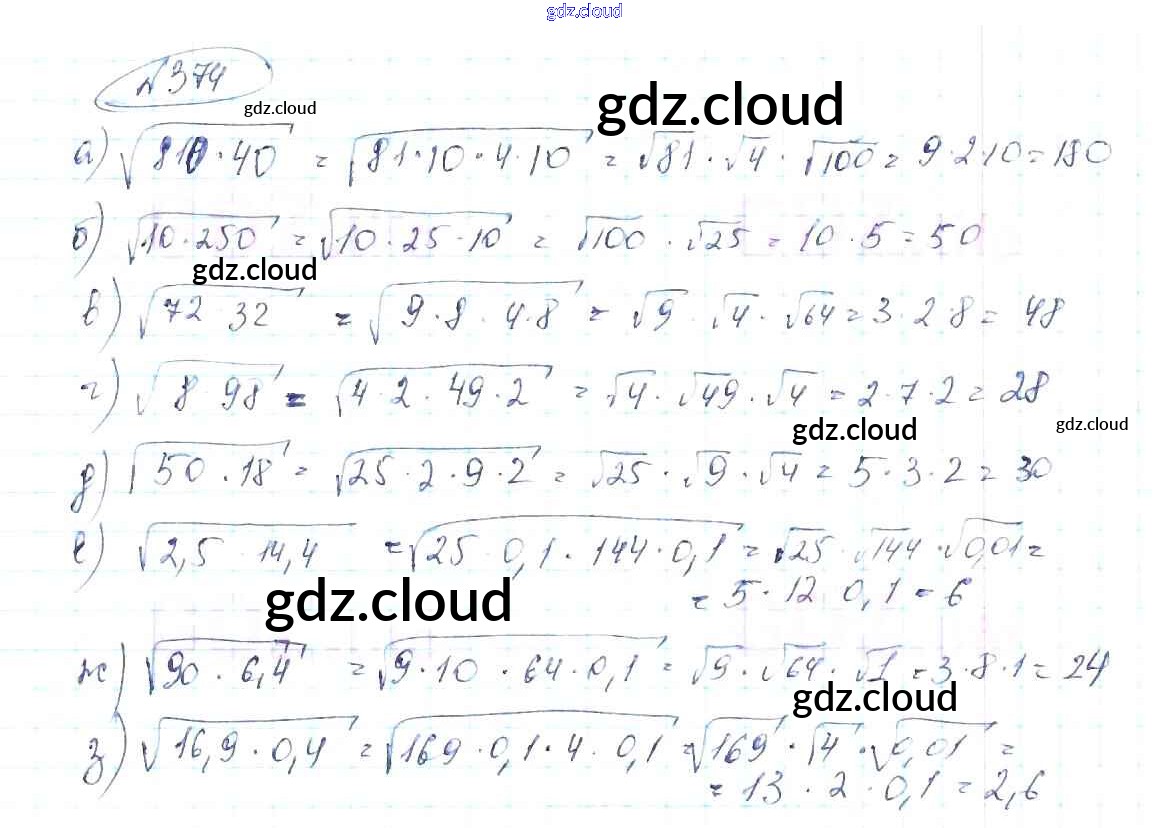 gdz.cloud
№374
gdz.cloud
gdz.cloud
а) √810·40 = √81·10·4·10 = √81·√4·√100 = 9·2·10 = 180
б) √10·250 = √10·25·10 = √100·√25 = 10·5 = 50
gdz.cloud
в) √72·32 = √9·8·4·8 = √9·√4·√64 = 3·2·8 = 48
г) √8·98 = √4·2·49·2 = √4·√49·√4 = 2·7·2 = 28
gdz.cloud
gdz.cloud
д) √50·18 = √25·2·9·2 = √25·√9·√4 = 5·3·2 = 30
е) √2,5·14,4 = √25·0,1·144·0,1 = √25·√144·√0,01 =
= 5·12·0,1 = 6
gdz.cloud
ж) √90·6,4 = √9·10·64·0,1 = √9·√64·√1 = 3·8·1 = 24
gdz.cloud
з) √16,9·0,4 = √169·0,1·4·0,1 = √169·√4·√0,01 =
= 13·2·0,1 = 2,6